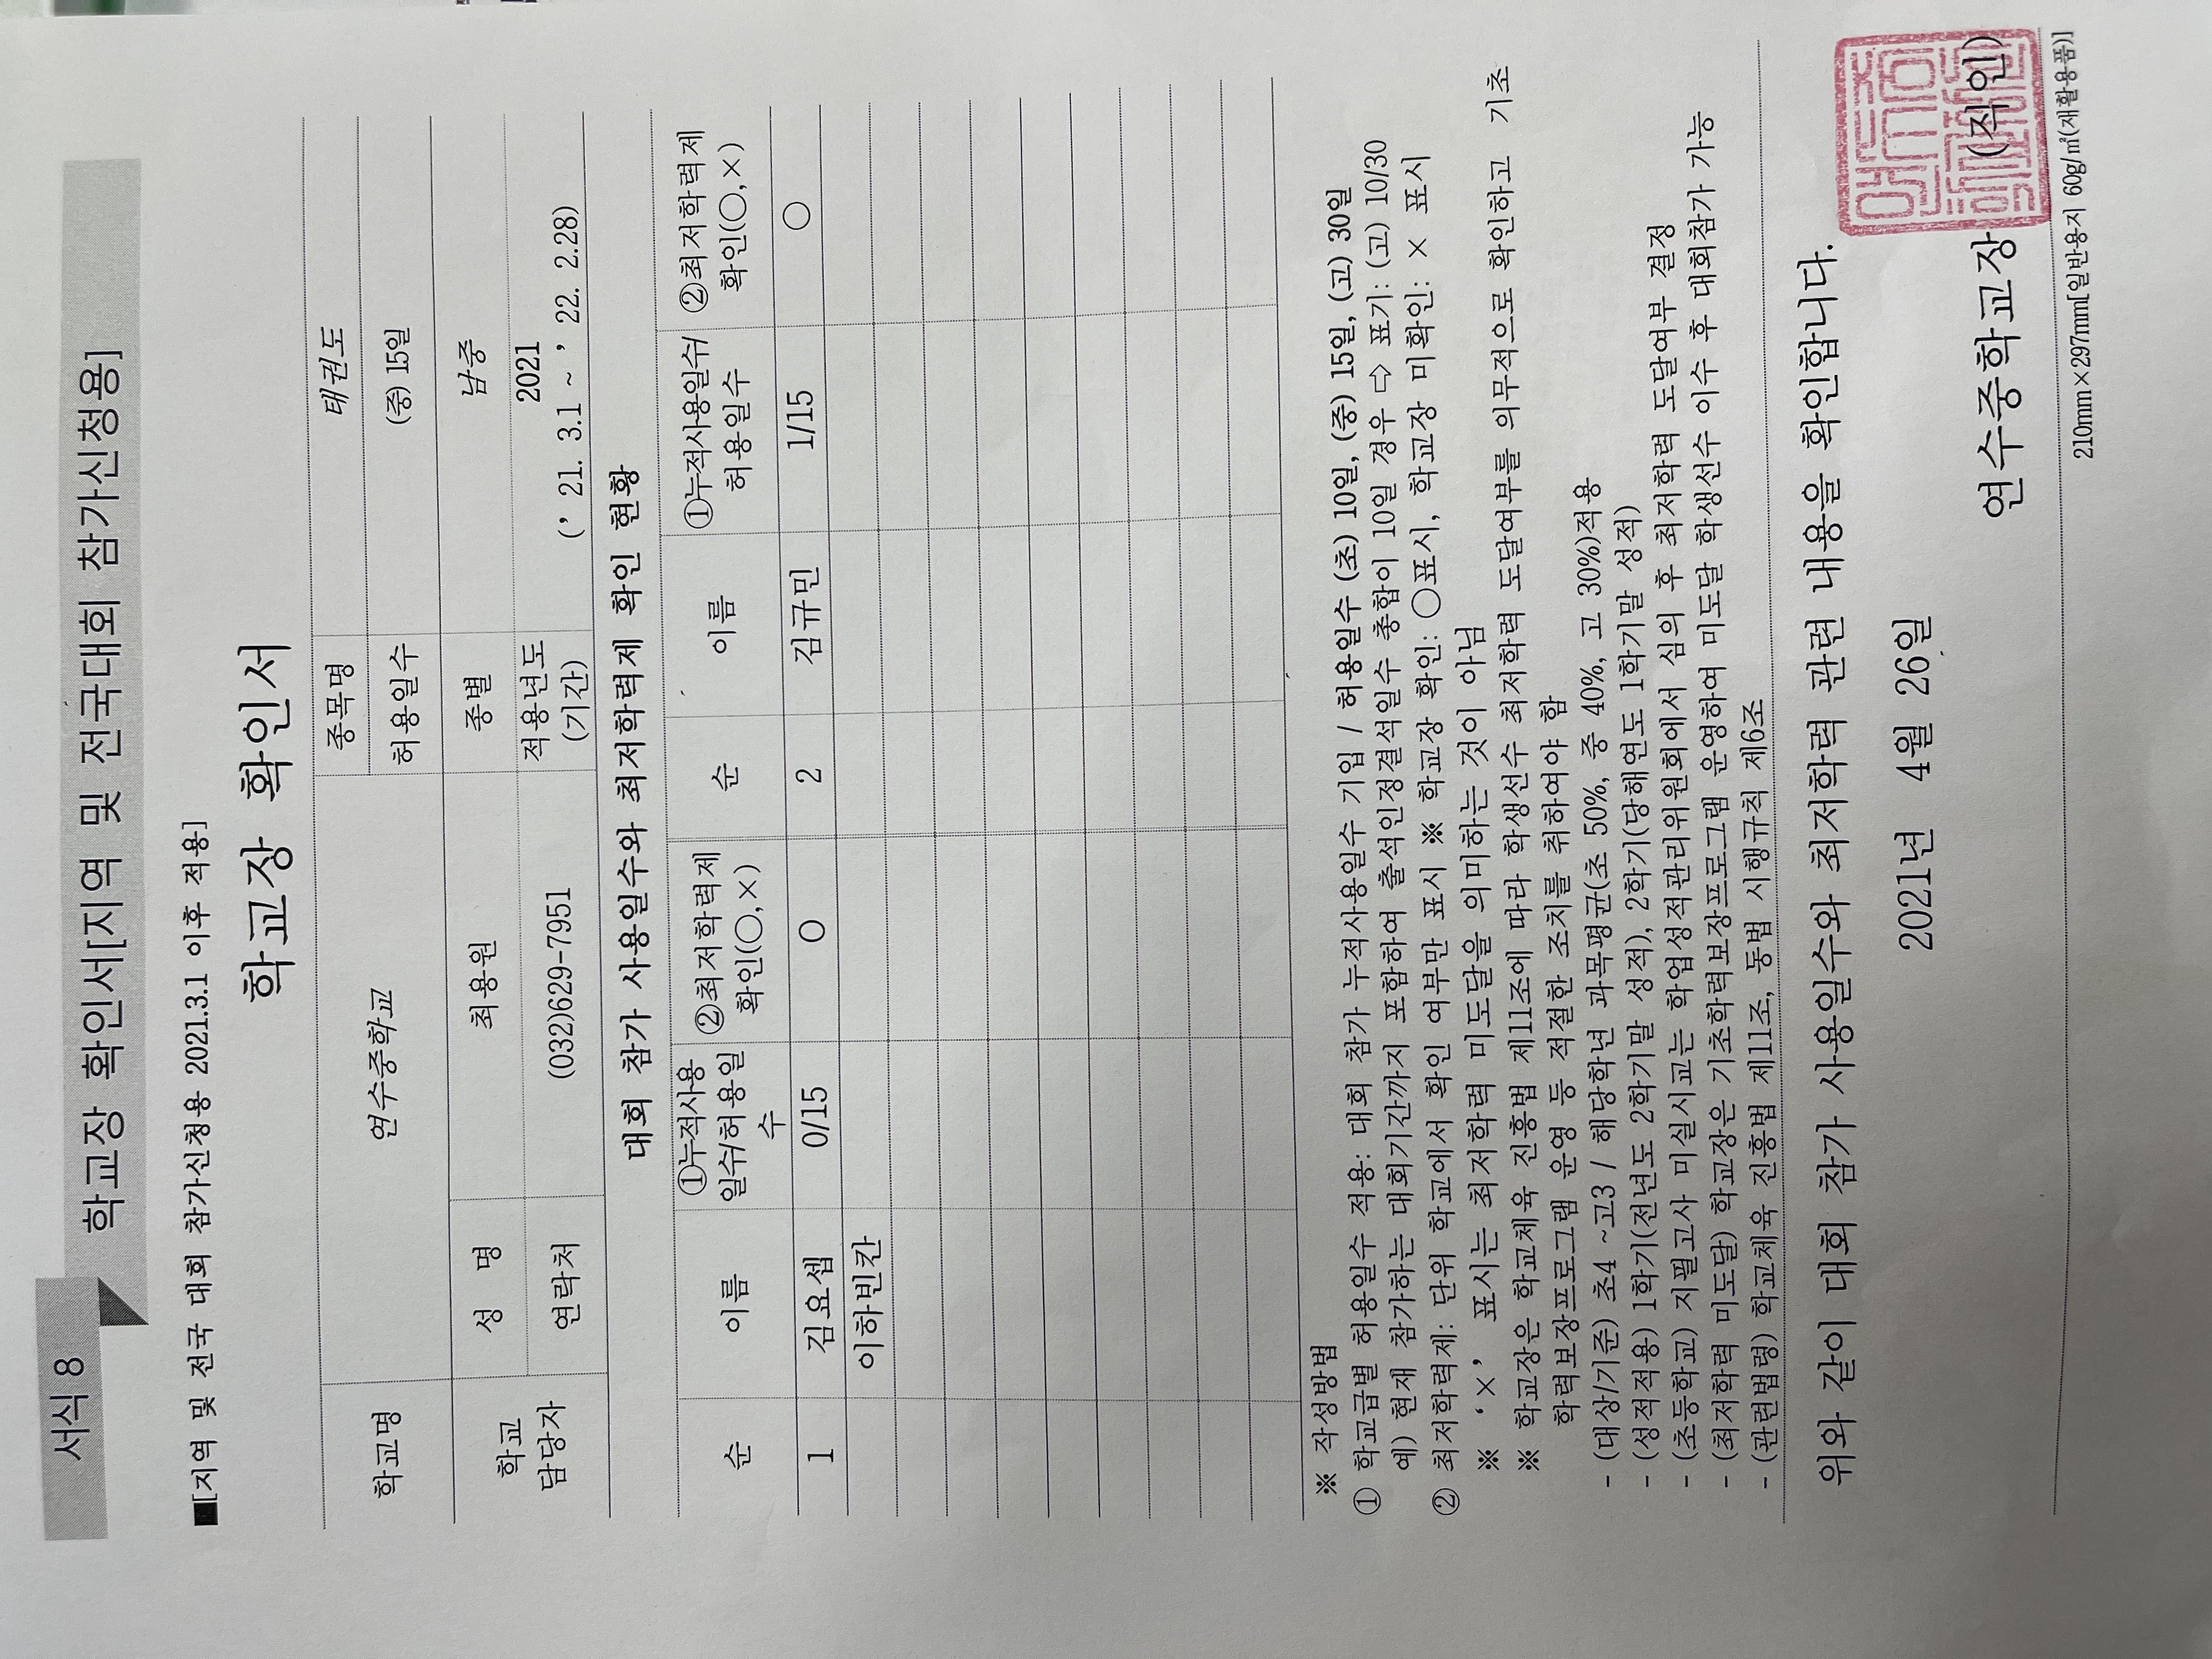 서식 8
학교장 확인서[지역 및 전국대회 참가신청용]
■[지역 및 전국 대회 참가신청용 2021.3.1 이후 적용]
학교장 확인서
학교명 연수중학교 종목명 태권도
허용일수 (중) 15일
학교
담당자
성 명 최용원 종별 남중
연락처 (032)629-7951 적용년도
(기간)
2021
(’21. 3.1 ~ ’22. 2.28)
대회 참가 사용일수와 최저학력제 확인 현황
순 이름 ①누적사용
일수/허용일
수
②최저학력제
확인(○,×)
순 이름 ①누적사용일수/
허용일수
②최저학력제
확인(○,×)
1 김요셉 0/15 O 2 김규민 1/15 ○
이하빈칸
※ 작성방법
① 학교급별 허용일수 적용: 대회 참가 누적사용일수 기입 / 허용일수 (초) 10일, (중) 15일, (고) 30일
예) 현재 참가하는 대회기간까지 포함하여 출석인정결석일수 총합이 10일 경우 ⇨ 표기: (고) 10/30
② 최저학력제: 단위 학교에서 확인 여부만 표시 ※ 학교장 확인: ○표시, 학교장 미확인: × 표시
※ ‘×’ 표시는 최저학력 미도달을 의미하는 것이 아님
※ 학교장은 학교체육 진흥법 제11조에 따라 학생선수 최저학력 도달여부를 의무적으로 확인하고 기초
학력보장프로그램 운영 등 적절한 조치를 취하여야 함
- (대상/기준) 초4 ~고3 / 해당학년 과목평균(초 50%, 중 40%, 고 30%)적용
- (성적적용) 1학기(전년도 2학기말 성적), 2학기(당해연도 1학기말 성적)
- (초등학교) 지필고사 미실시교는 학업성적관리위원회에서 심의 후 최저학력 도달여부 결정
- (최저학력 미도달) 학교장은 기초학력보장프로그램 운영하여 미도달 학생선수 이수 후 대회참가 가능
- (관련법령) 학교체육 진흥법 제11조, 동법 시행규칙 제6조
위와 같이 대회 참가 사용일수와 최저학력 관련 내용을 확인합니다.
2021년 4월 26일
연수중학교장 (직인)
210mm×297mm[일반용지 60g/㎡(재활용품)]